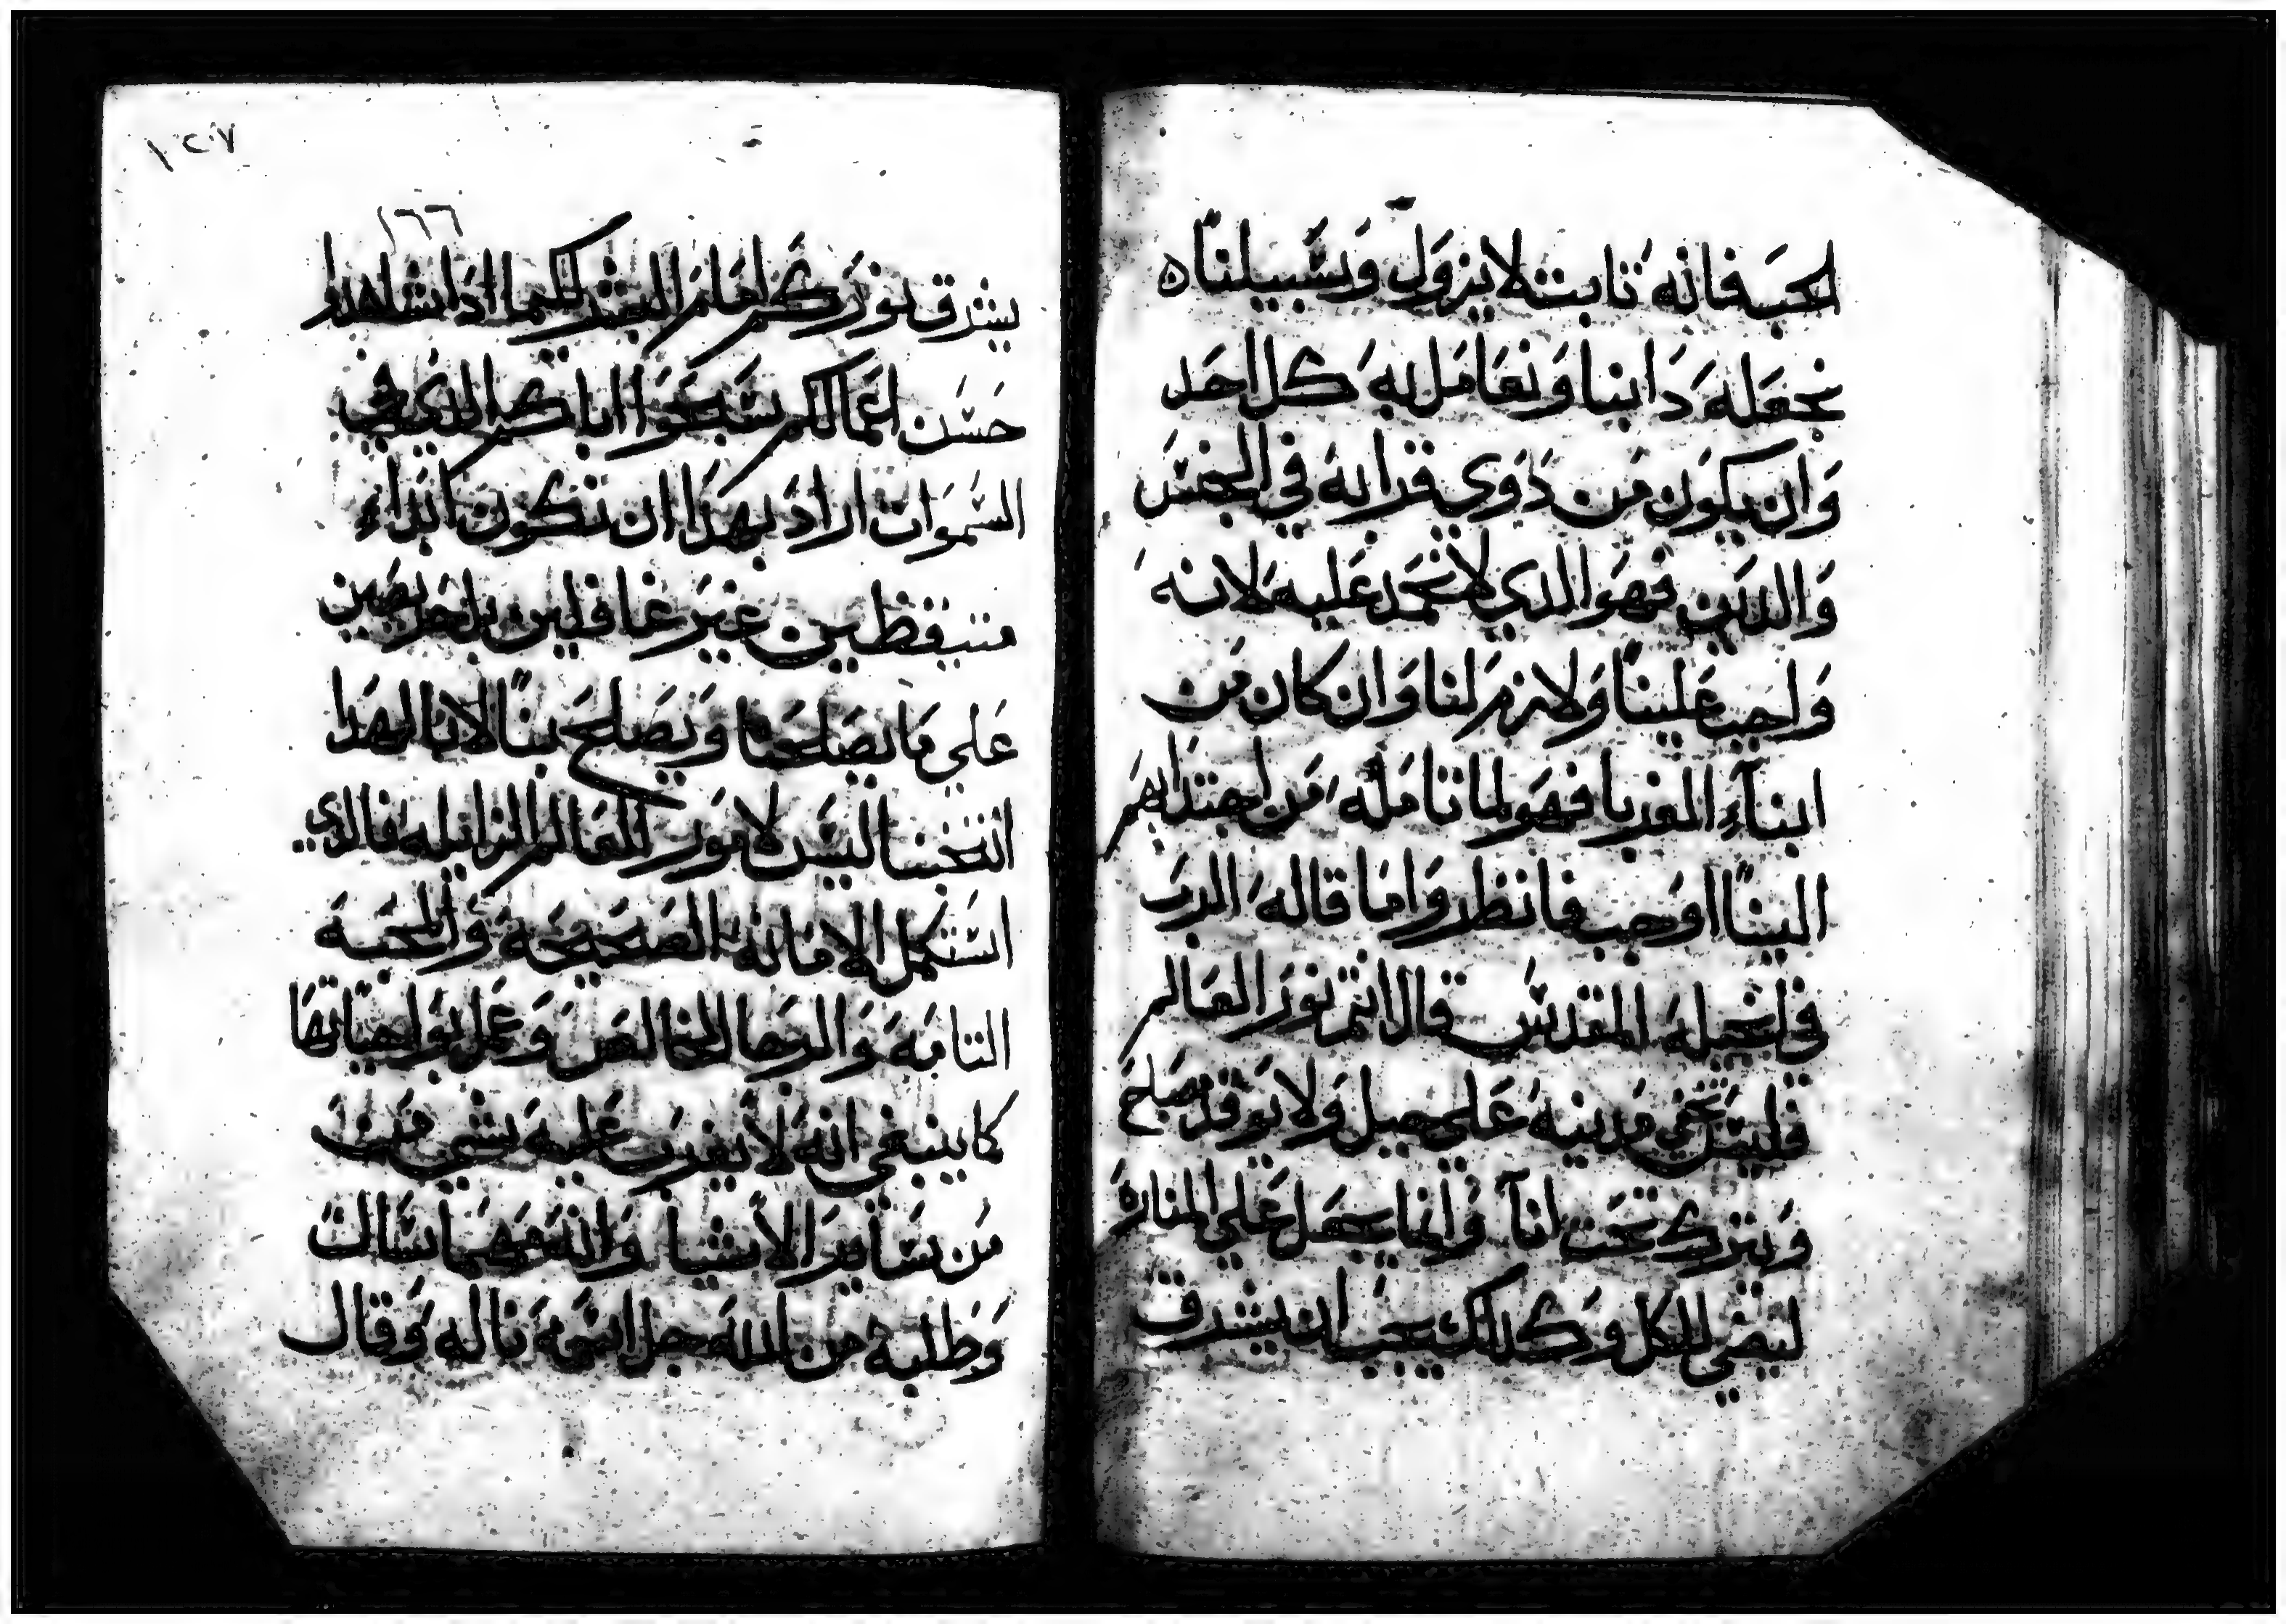 الحب فانه ثابت لا يزول وسبيلنا ه
نجعله دابنا ونعامل به كل احد
وان يكون من ذوي قرابه في الجنس
والدين فهو الذي لا نحمد عليه لانه
واجب علينا ولازم لنا وان كان من
ابناء الغربا فهو لما تامله من اجتدابهم
الينا اوجب فانظر واما قاله الرب
في انجيله المقدس قال انتم نور العالم
فليس تخفي مدينه علي جبل ولا يوقد مصباح
ويترك تحت انآ وانما يجعل علي المناره
ليضي للكل وكدلك يجب ان يشرق
١٢٧
١٦٦
يشرق نوركم امام البشر لكيما ادا شاهدوا
حسن اعمالكم سبحوا اباكم الدي في
السموات اراد بهدا ان نكون ابداء
متيقظين غير غافلين بل حريصين
علي ما يصلحنا ويصلح بنا لانا لهدا
انتخبنا ليس لامور العالم الزايله فالدي
استكمل الامانه الصحيحه والمحبة
التامه والرجا الخالص وعمل بواجباتها
كما ينبغي انه لا يعزب عليه شي
من ساير الأشيا وانه مهما سال
وطلبه من الله جل اسمه ناله وقال